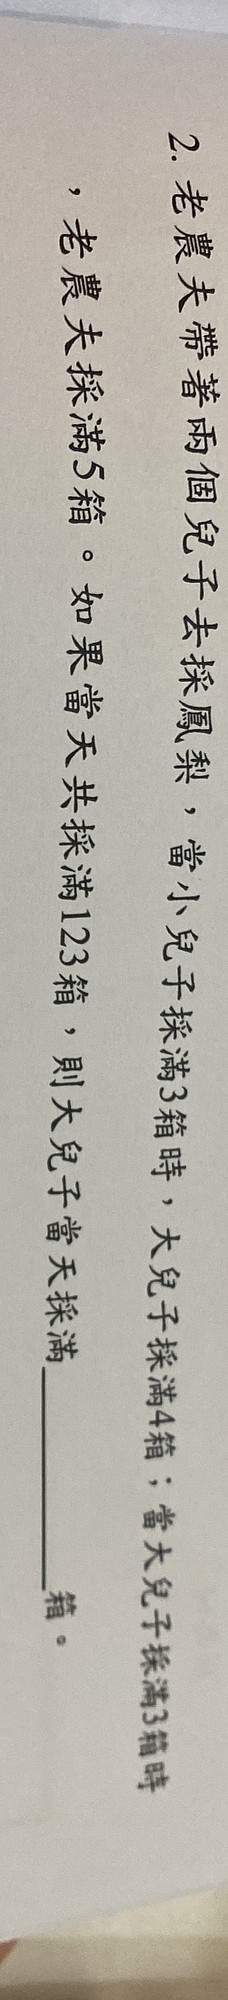 2. 老農夫帶著兩個兒子去採鳳梨，當小兒子採滿3箱時，大兒子採滿4箱；當大兒子採滿3箱時
，老農夫採滿5箱。如果當天共採滿123箱，則大兒子當天採滿＿＿＿＿＿箱。